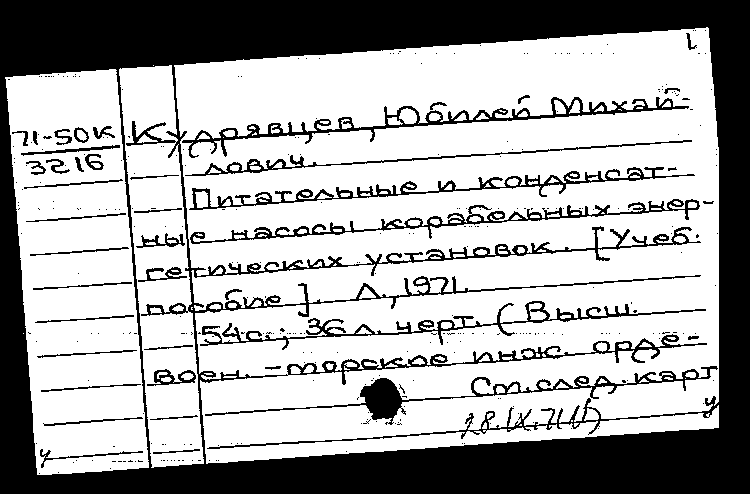 1
71-50К Кудрявцев, Юбилей Михай-
3216 лович.
Питательные и конденсат-
ные насосы корабельных энер-
гетических установок. [Учеб.
пособие]. Л., 1971.
54с.; 36 л. черт. (Высш.
воен.-морское инж. орде-
См. след. карт
28.IX.71
у у